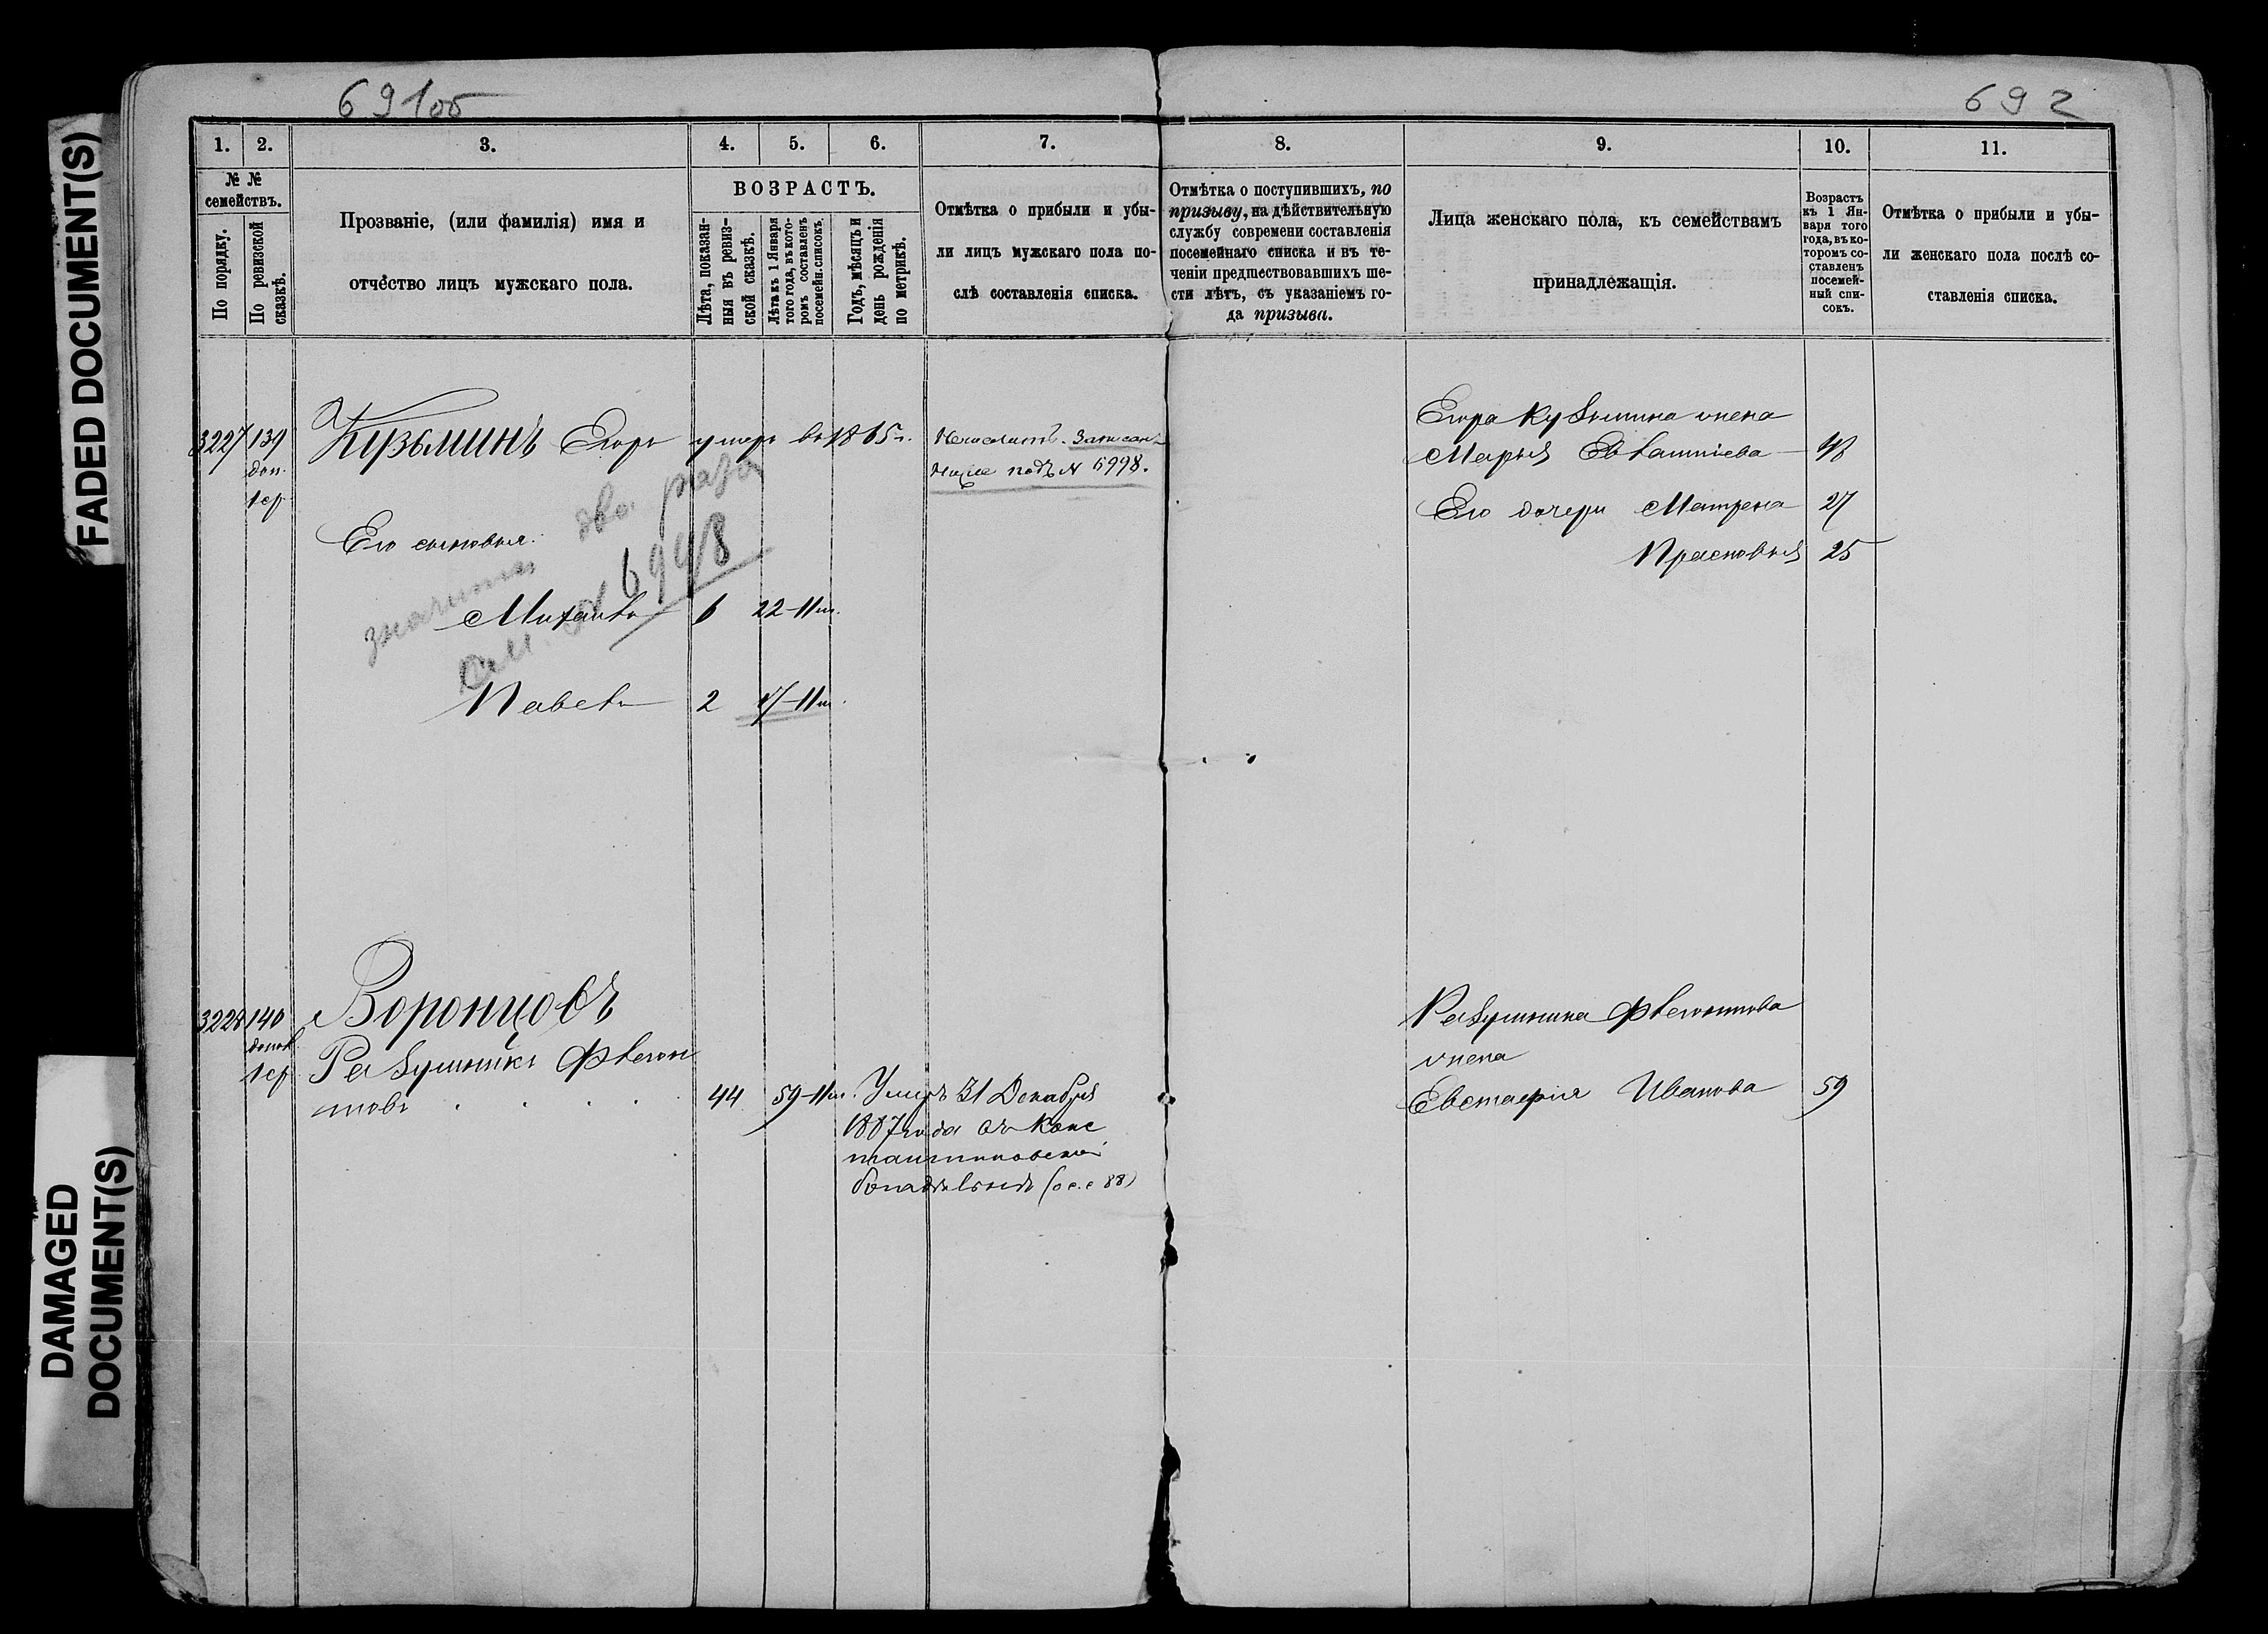 FADED DOCUMENT(S)
DAMAGED
DOCUMENT(S)
691об
692
1.
2.
3.
4.
5.
6.
7.
8.
9.
10.
11.
№ №
семействъ.
По порядку.
По ревизской
сказкѣ.
Прозваніе, (или фамилія) имя и
отчество лицъ мужскаго пола.
ВОЗРАСТЪ.
Лѣта, показан-
ныя въ ревиз-
ской сказкѣ.
Лѣта къ 1 Января
того года, въ кото-
ромъ составленъ
посемейн. списокъ.
Годъ, мѣсяцъ и
день рожденія
по метрикѣ.
Отмѣтка о прибыли и убы-
ли лицъ мужскаго пола по-
слѣ составленія списка.
Отмѣтка о поступившихъ, по
призыву, на дѣйствительную
службу современи составленія
посемейнаго списка и въ те-
ченіи предшествовавшихъ ше-
сти лѣтъ, съ указаніемъ го-
да призыва.
Лица женскаго пола, къ семействамъ
принадлежащія.
Возрастъ
къ 1 Ян-
варя того
года, въ ко-
торомъ со-
ставленъ
посемей-
ный спи-
сокъ.
Отмѣтка о прибыли и убы-
ли женскаго пола послѣ со-
ставленія списка.
3227
139
доп.
1 ср
Кузьминъ Егоръ умеръ въ 1865 г.
Записанъ
подъ N 6998.
Его сыновья:
значится два раза
см. N 6998
Михаилъ 6 22-11 м.
Павелъ 2 17-11 м.
Егора Кузьмина жена
Марья
Его дочери Матрена 27
Прасковья 25
3228
140
допол
1 ср
Воронцовъ
Разумникъ Флегон
товъ 44 59-11 м.
Умеръ 31 Декабря
1887 года въ Конс
тантиновской
богадѣльнѣ
Разумника Флегонтова
жена
Евстафія Иванова 59